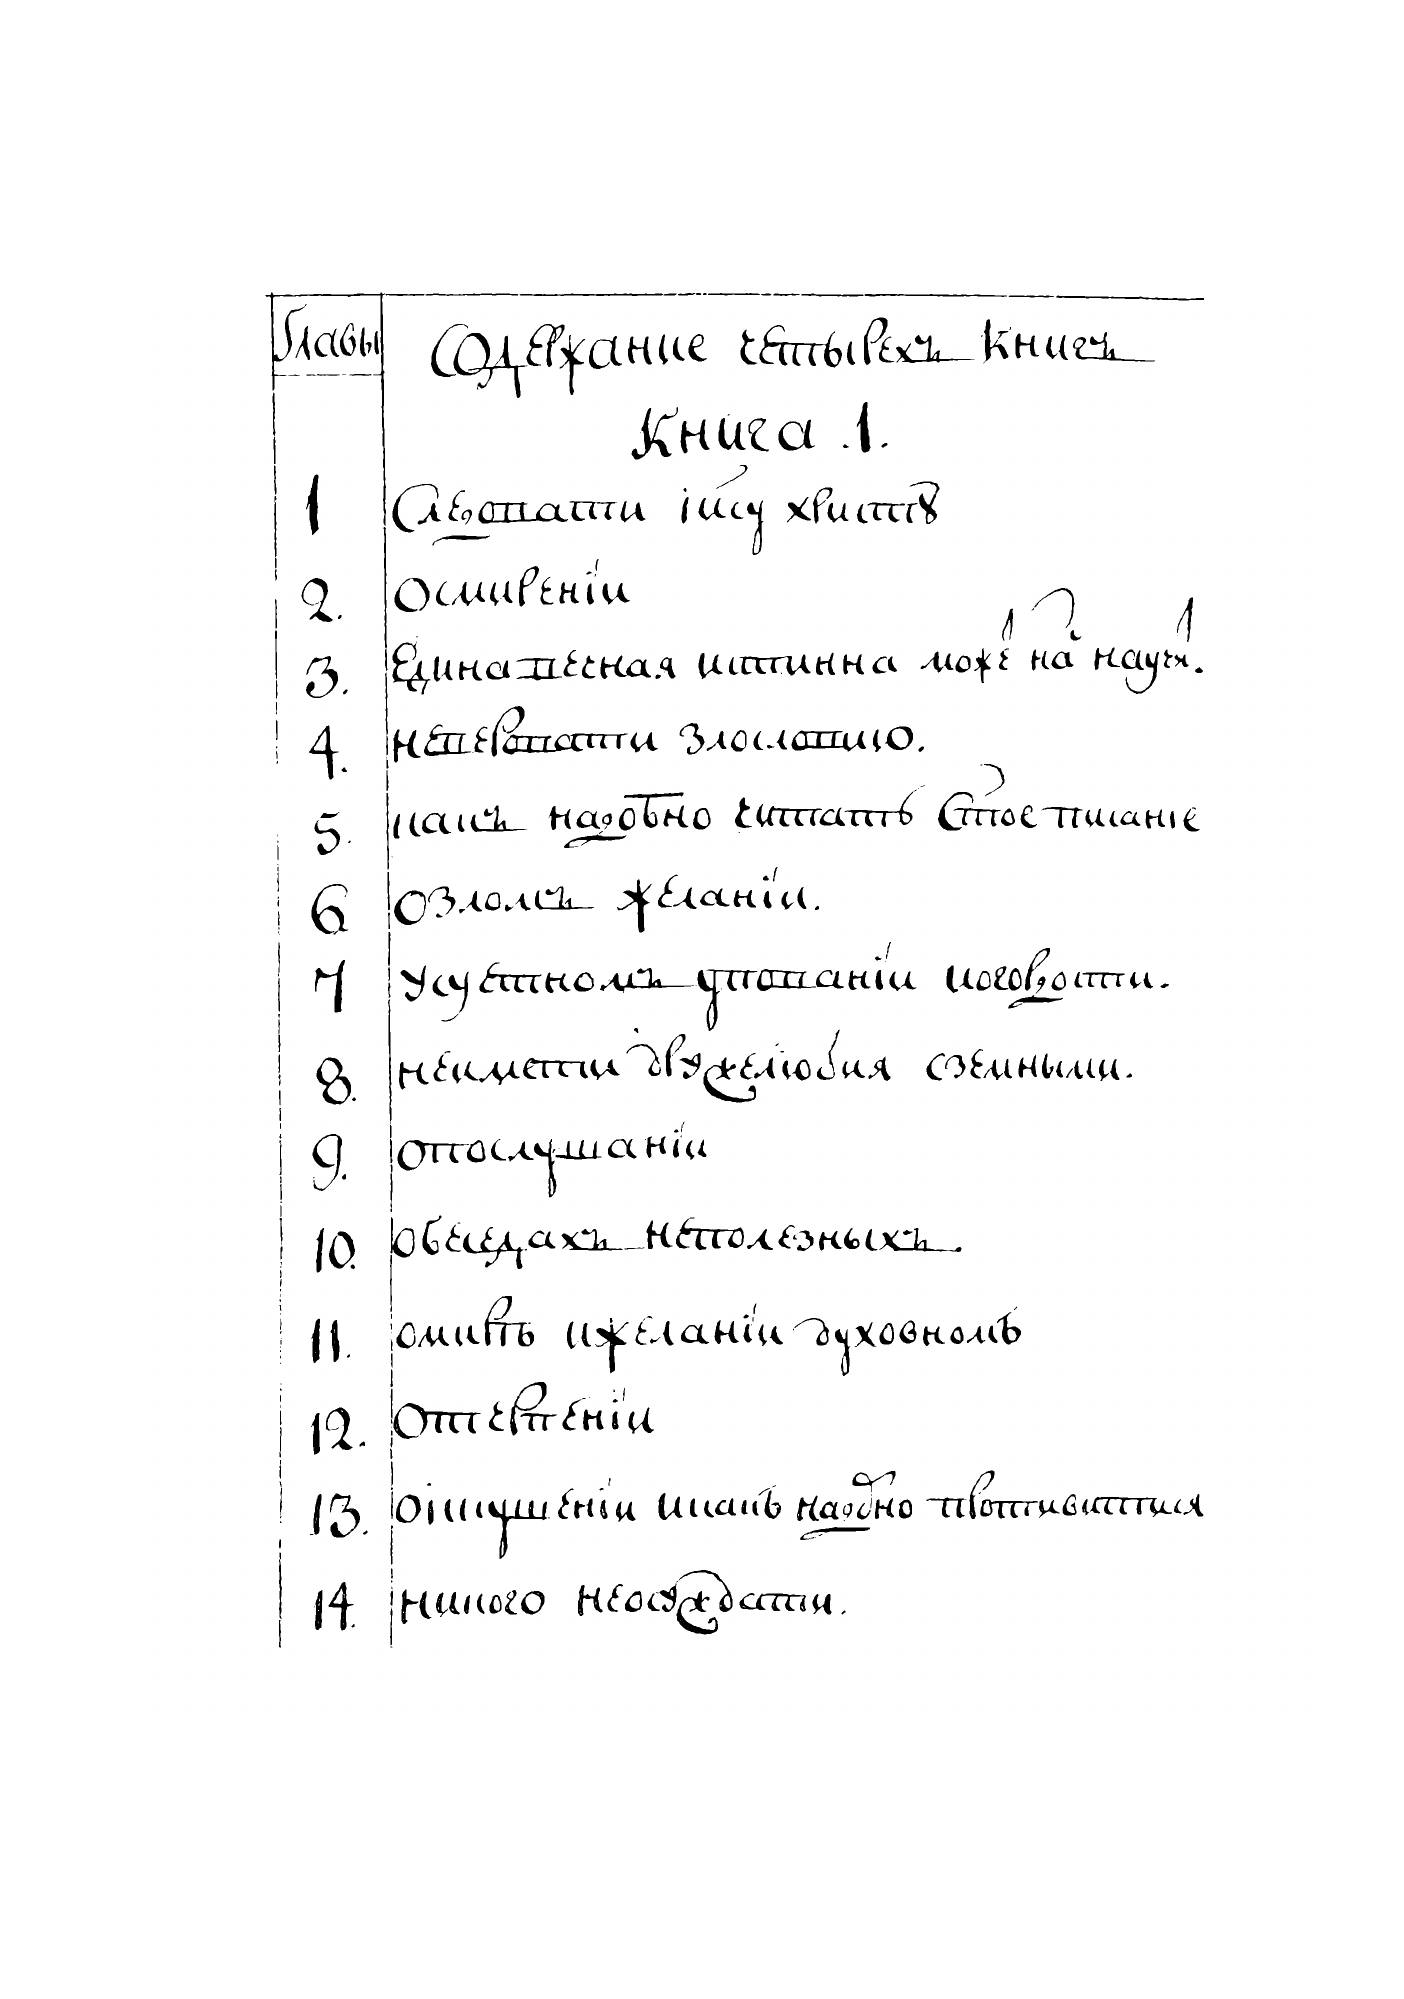 Главы
Содержание четырехъ книгъ
Книга .1.
1 Следовати іису христѹ
2. О смиреніи
3. Единавечная истинна може на научи.
4. неверовати злословию.
5. какъ надобно читать Стое писание
6 о зломъ желаніи.
7 У суетномъ уповании и о гордости.
8. не имети дружелюбия с земными.
9. о послушаніи
10. о беседахъ неполезныхъ.
11. о мирѣ и желаніи духовномъ
12. О терпеніи
13. о іскушеніи и какъ надобно противитися
14. никого неосуждати.